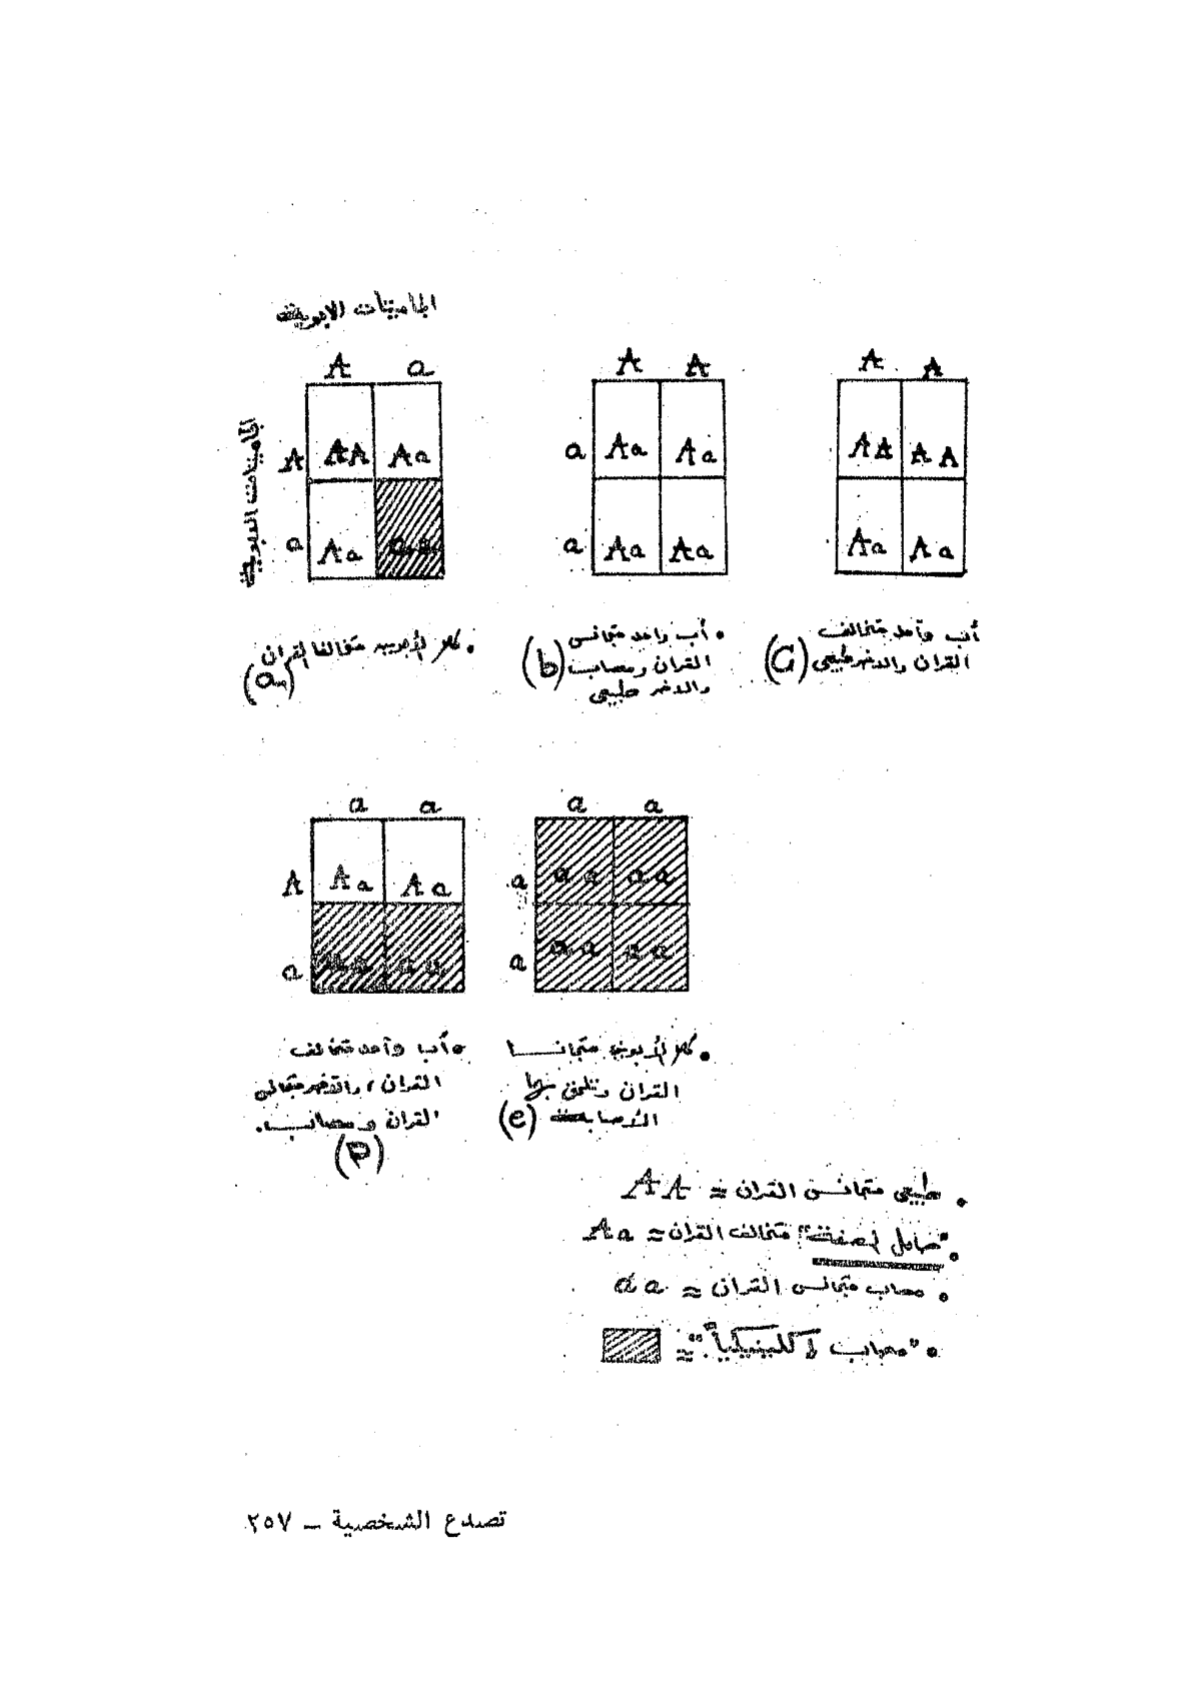 الجاميتات الابوية
A a
A A
A A
الجاميتات الابوية
A AA Aa
a Aa aa
a Aa Aa
a Aa Aa
AA AA
Aa Aa
• كلا الأبوين متخالفا القران
(a)
• أب واحد متجانس
القران ومصاب (b)
والاخر طبيعي
أب واحد متخالف
القران والاخر طبيعي (C)
a a
A Aa Aa
a aa aa
a a
a aa aa
a aa aa
• أب واحد متخالف
القران، والاخر متجانس
القران ومصاب.
• كلا الأبوين متجانسا
القران وتلحق بهما
الاصابة (e)
• طبيعي متجانس القران ≈ AA
• "حامل لصفة" متخالف القران ≈ Aa
• مصاب متجانس القران ≈ aa
• "مصاب اكلينيكياً" ≈
تصدع الشخصية – ٢٥٧